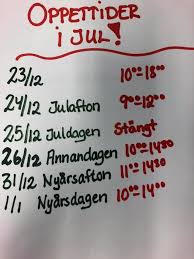 ÖPPETTIDER
I JUL!
23/12 10⁰⁰-18⁰⁰
24/12 Julafton 9⁰⁰-12⁰⁰
25/12 Juldagen Stängt
26/12 Annandagen 10⁰⁰-14³⁰
31/12 Nyårsafton 11⁰⁰-14³⁰
1/1 Nyårsdagen 10⁰⁰-14⁰⁰